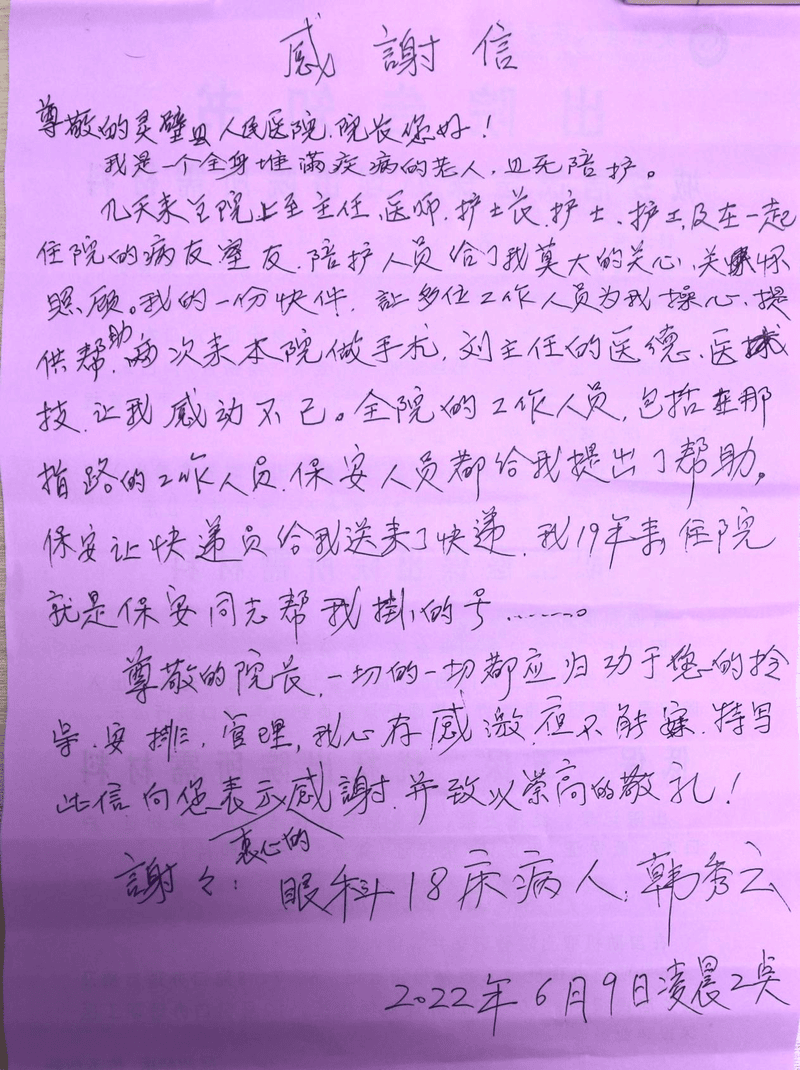 感謝信
尊敬的灵璧县人民医院.院长您好!
我是一个全身堆满疾病的老人,且无陪护。
几天来全院上至主任、医师、护士长、护士、护工,及在一起
住院的病友室友、陪护人员给了我莫大的关心、关怀
照顾。我的一份快件,讓多位工作人员为我操心、提
供帮助,两次来本院做手术,刘主任的医德、医
技,让我感动不已。全院的工作人员,包括在那
指路的工作人员、保安人员都给我提出了帮助。
保安让快递员给我送来了快递,我19年来住院
就是保安同志帮我掛的号……。
尊敬的院长,一切的一切都应归功于您的
导、安排、管理,我心存感激,夜不能寐,特写
此信向您表示感謝,并致以崇高的敬礼!
衷心的
謝々:眼科18床病人:韩秀云
2022年6月9日凌晨2点